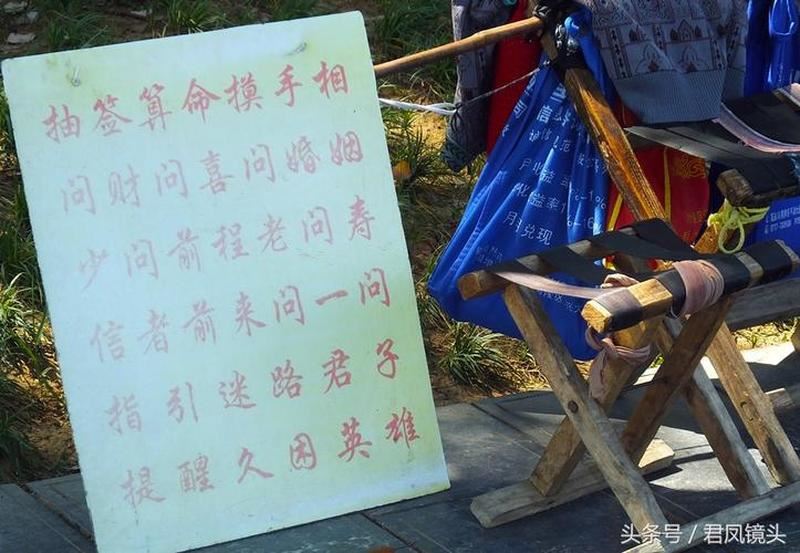 抽签算命摸手相
问财问喜问婚姻
少问前程老问寿
信者前来问一问
指引迷路君子
提醒久困英雄
诚信
月收益率
化益率1%-10%
月兑现
头条号 / 君凤镜头